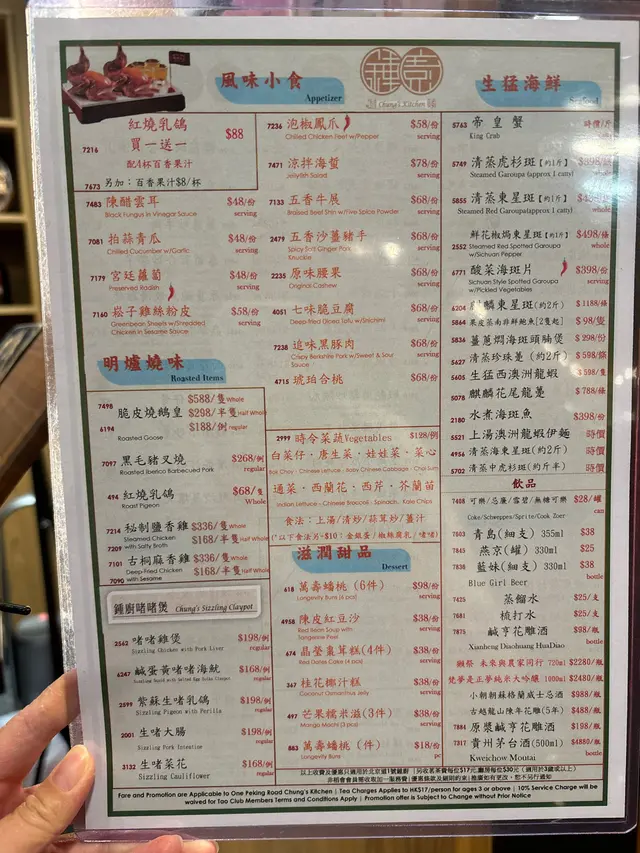 風味小食
Appetizer
鍾素
Chung's Kitchen
生猛海鮮
紅燒乳鴿
買一送一
$88
7216
配4杯百香果汁
7673 另加：百香果汁$8/杯
7483 陳醋雲耳 $48/份
Black Fungus in Vinegar Sauce serving
7081 拍蒜青瓜 $48/份
Chilled Cucumber w/Garlic serving
7179 宮廷蘿蔔 $48/份
Preserved Radish serving
7160 崧子雞絲粉皮 $58/份
Greenbean Sheets w/Shredded serving
Chicken in Sesame Sauce
明爐燒味
Roasted Items
7498 $588/隻 Whole
脆皮燒鵝皇 $298/半隻 Half Whole
6194 $188/例 regular
Roasted Goose
7097 黑毛豬叉燒 $268/例
Roasted Iberico Barbecued Pork regular
494 紅燒乳鴿 $68/隻
Roast Pigeon Whole
7214 秘制鹽香雞 $336/隻 Whole
Steamed Chicken $168/半隻 Half Whole
7209 with Salty Broth
7101 古桐麻香雞 $336/隻 Whole
Deep-Fried Chicken $168/半隻 Half Whole
7090 with Sesame
鍾廚啫啫煲 Chung's Sizzling Claypot
2562 啫啫雞煲 $198/例
Sizzling Chicken with Pork Liver regular
6247 鹹蛋黃啫啫海魷 $168/例
Sizzling Squid with Salted Egg Yolks Claypot regular
2599 紫蘇生啫乳鴿 $198/例
Sizzling Pigeon with Perilla regular
2001 生啫大腸 $198/例
Sizzling Pork Intestion regular
3132 生啫菜花 $168/例
Sizzling Cauliflower regular
7236 泡椒鳳爪 $58/份
Chilled Chicken Feet w/Pepper serving
7471 涼拌海蜇 $78/份
Jellyfish Salad serving
7133 五香牛展 $68/份
Braised Beef Shin w/Five Spice Powder serving
2479 五香沙薑豬手 $68/份
Spicy Salt Ginger Pork serving
Knuckle
2235 原味腰果 $68/份
Original Cashew serving
4051 七味脆豆腐 $68/份
Deep-fried Diced Tofu w/Shichimi serving
7238 追味黑豚肉 $68/份
Crispy Berkshire Pork w/Sweet & Sour serving
Sauce
4715 琥珀合桃 $68/份
2999 時令菜蔬Vegetables $128/例
白菜仔．唐生菜．娃娃菜．菜心
Bok Choy · Chinese Lettuce · Baby Chinese Cabbage · Choi Sum
通菜．西蘭花．西芹．芥蘭苗
Indian Lettuce · Chinese Broccoli · Spinach · Kale Chips
食法：上湯/清炒/蒜茸炒/薑汁
(*以下食法另+$10：金銀蛋/椒絲腐乳/啫啫)
滋潤甜品
Dessert
618 萬壽蟠桃（6件） $98/份
Longevity Buns (6 pcs) serving
4958 陳皮紅豆沙 $38/份
Red Bean Soup with serving
Tangerine Peel
674 晶瑩棗茸糕(4件) $38/份
Red Dates Cake (4 pcs) serving
367 桂花椰汁糕 $38/份
Coconut Osmanthus Jelly serving
497 芒果糯米滋(3件) $38/份
Mango Mochi (3 pcs) serving
883 萬壽蟠桃（件） $18/份
Longevity Buns pc
5763 帝皇蟹 時價/斤
King Crab
5749 清蒸虎杉斑【約1斤】
Steamed Garoupa (approx 1 catty)
5855 清蒸東星斑【約1斤】
Steamed Red Garoupa(approx 1 catty) whole
鮮花椒焗東星斑【約1斤】 $498/條
2552 Steamed Red Spotted Garoupa whole
w/Sichuan Pepper
6771 酸菜海斑片 $398/份
Sichuan Style Spotted Garoupa serving
w/Pickled Vegetables
6204 麒麟東星斑(約2斤) $1188/條
5864 $98/隻
5836 薑蔥焗海斑頭腩煲 $298/份
5627 清蒸珍珠躉（約2斤） $598/條
5605 生猛西澳洲龍蝦 $598/隻
5078 麒麟花尾龍躉 $788/條
2180 水煮海斑魚 $398/份
5521 上湯澳洲龍蝦伊麵 時價
4956 清蒸海東星斑(約2斤) 時價
5702 清蒸中虎杉斑(約斤半) 時價
飲品
7408 可樂/忌廉/雪碧/無糖可樂 $28/罐
Coke/Schweppes/Sprite/Coke Zoer can
7503 青島(細支) 355ml $38
7843 燕京(罐) 330ml $25
7836 藍妹(細支) 330ml $38
Blue Girl Beer bottle
7425 蒸餾水 $25/支
7681 梳打水 $25/支
7875 鹹亨花雕酒 $98/瓶
Xianheng Diaohuang HuaDiao bottle
獺祭 未來與農家同行 720ml $2280/瓶
梵夢是正夢純米大吟釀 1000ml $2480/瓶
小朝朝蘇格蘭威士忌酒 $988/瓶
古越龍山陳年花雕(5年) $488/瓶
7884 原裝鹹亨花雕酒 $198/瓶
7317 貴州茅台酒(500ml) $4880/瓶
Kweichow Moutai bottle
以上收費及優惠只適用於北京道1號鍾廚 | 另收茗茶費每位$17元,廳房每位$30元（適用於3歲或以上）
Fare and Promotion are Applicable to One Peking Road Chung's Kitchen | Tea Charges Applies to HK$17/person for ages 3 or above | 10% Service Charge will be
waived for Tao Club Members Terms and Conditions Apply | Promotion offer is Subject to Change without Prior Notice